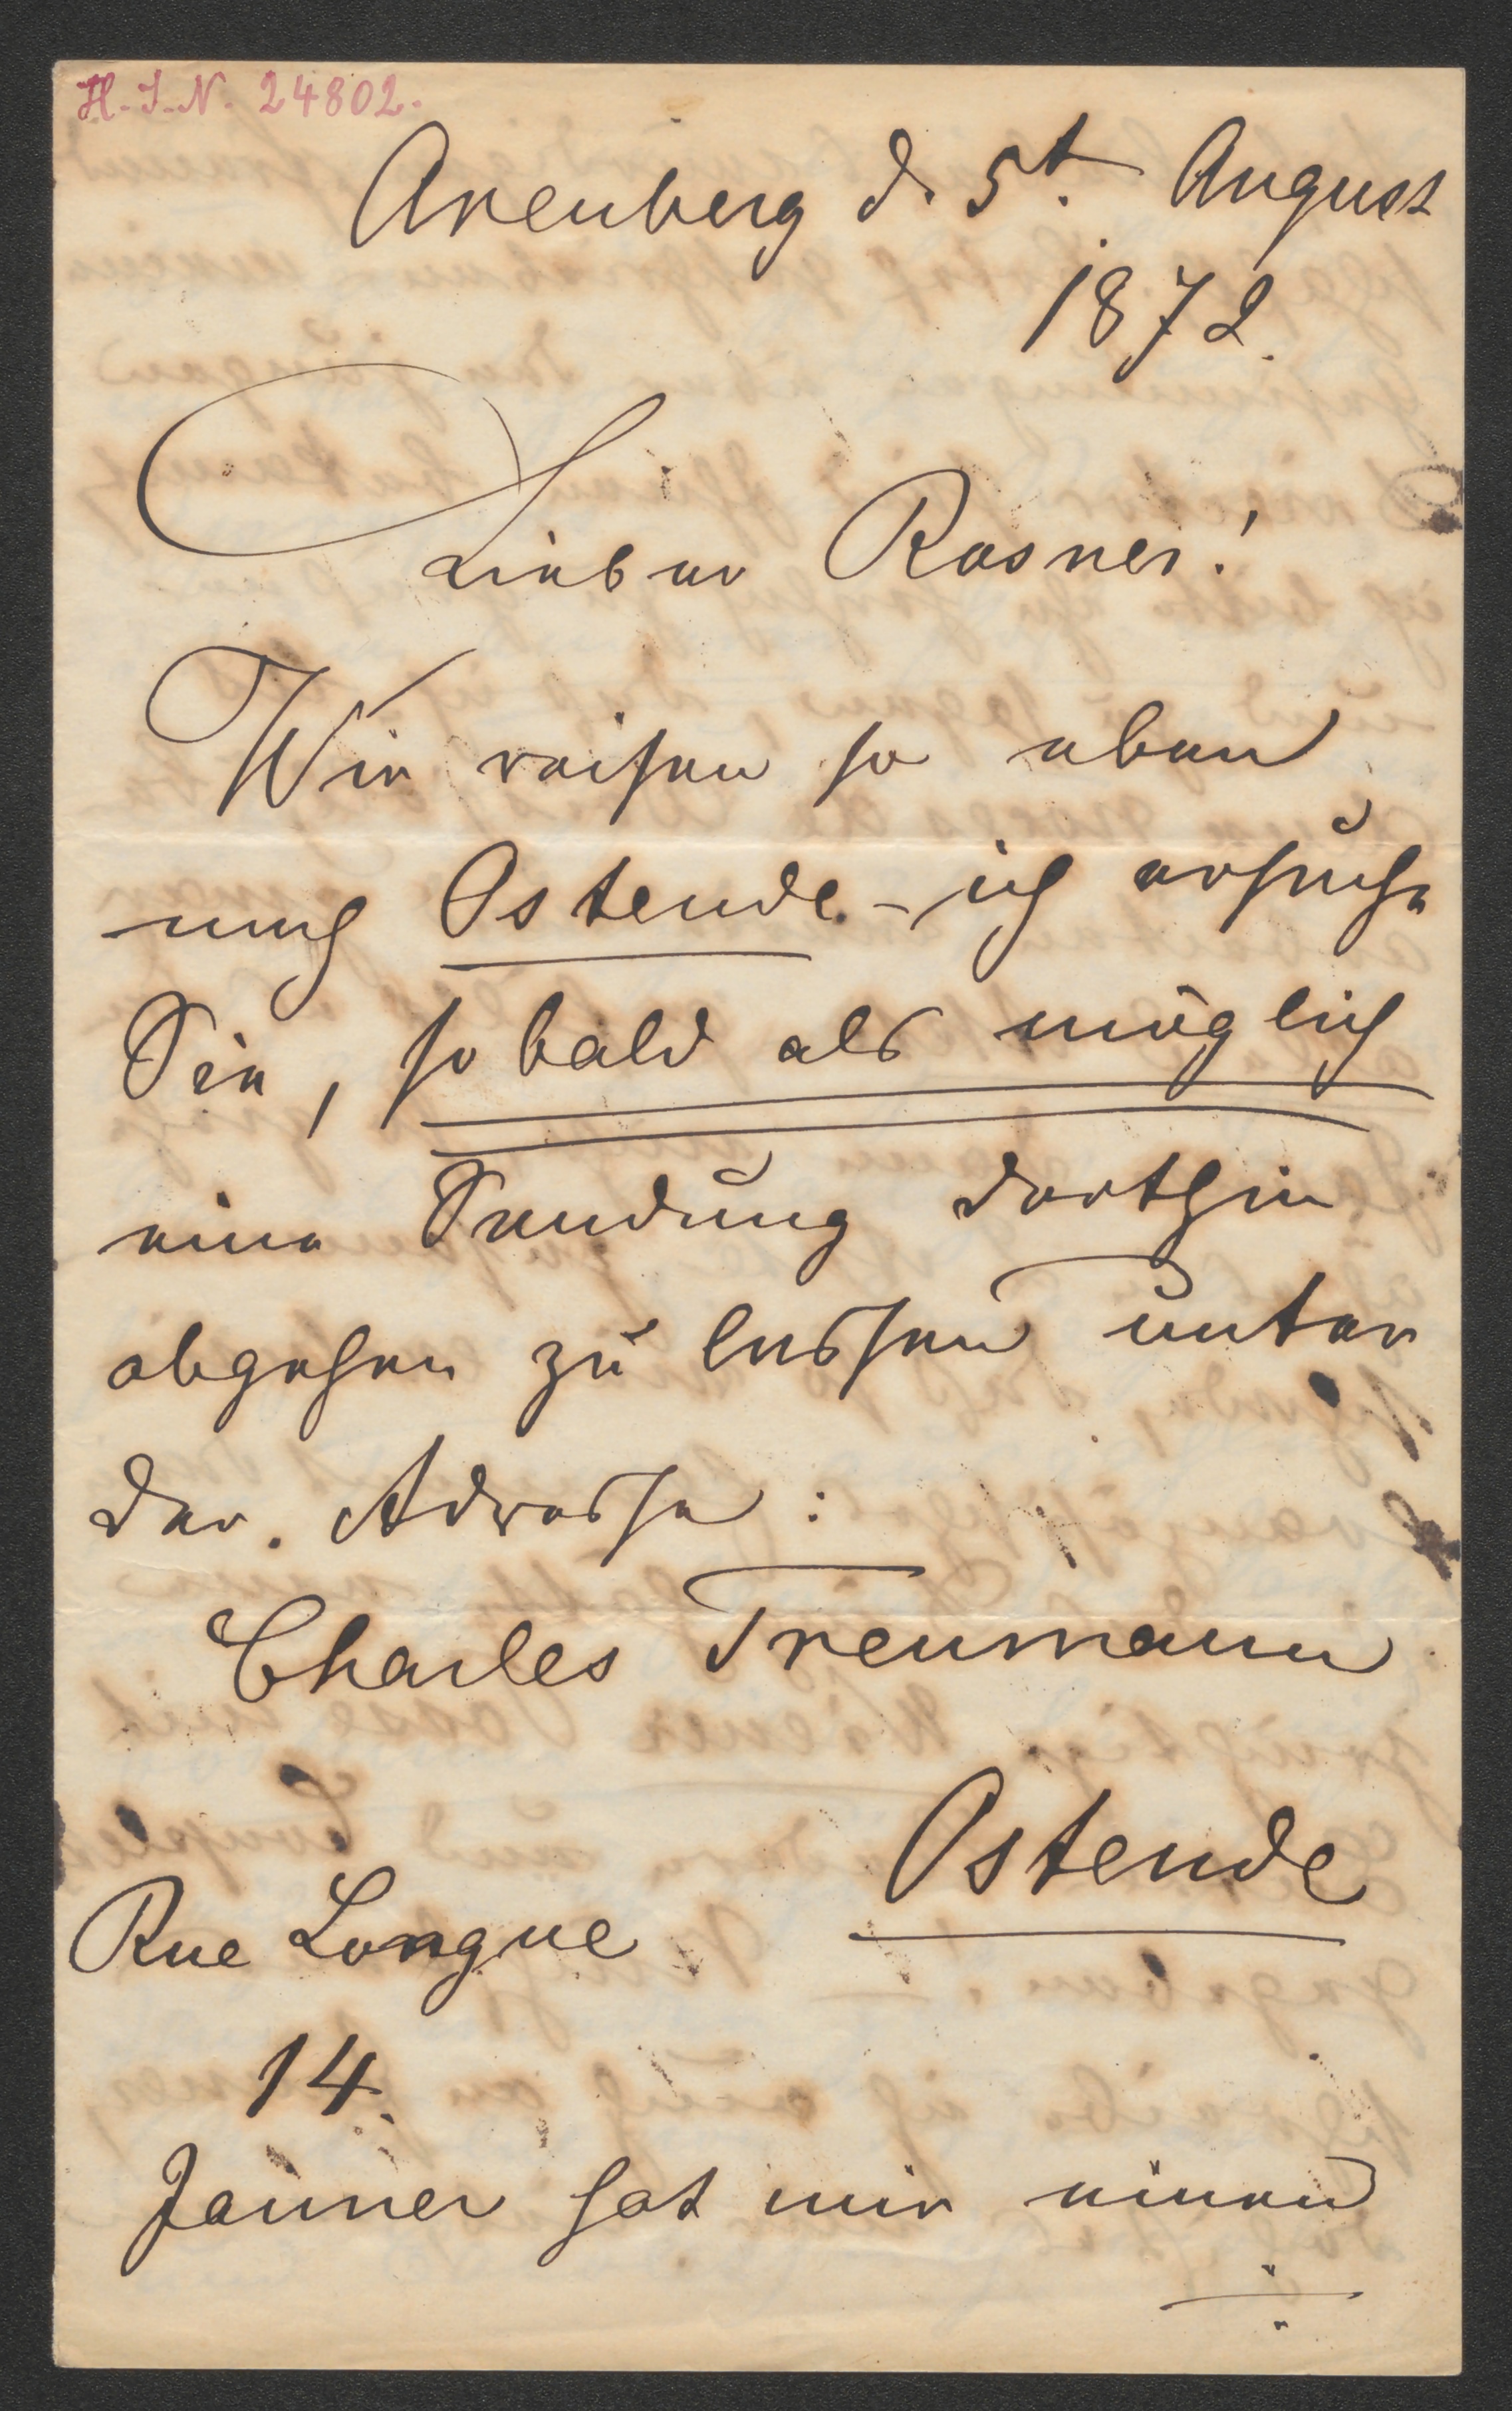 H.I.N. 24802.
Arenberg d. 5t. August
1872.
Lieber Rosner!
Wir reisen so eben
nach Ostende. - ich ersuche
Sie, so bald als möglich
eine Sendung dorthin
abgehen zu lassen unter
der. Adresse:
Charles Treumann
Ostende
Rue Longue
14.
Jauner hat mir einen